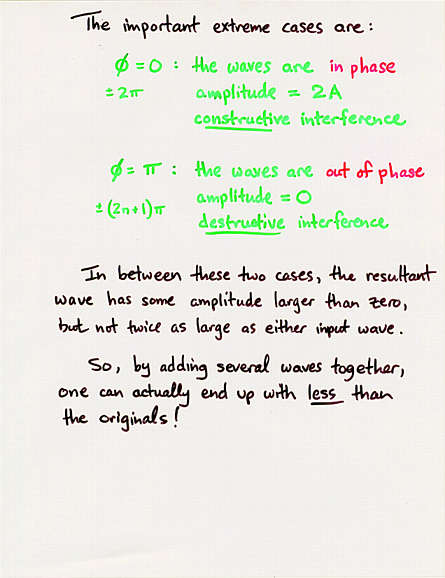 The important extreme cases are:
φ = 0 : the waves are in phase
± 2π amplitude = 2A
constructive interference
φ = π : the waves are out of phase
± (2n+1)π amplitude = 0
destructive interference
In between these two cases, the resultant
wave has some amplitude larger than zero,
but not twice as large as either input wave.
So, by adding several waves together,
one can actually end up with less than
the originals!